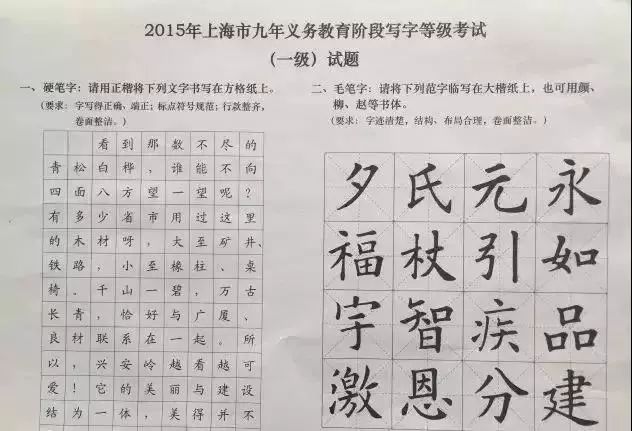 2015年上海市九年义务教育阶段写字等级考试
（一级）试题
一、硬笔字：请用正楷将下列文字书写在方格纸上。
（要求：字写得正确、端正；标点符号规范；行款整齐，
卷面整洁。）
看到那数不尽的
青松白桦，谁能不向
四面八方望一望呢？
有多少省市用过这里
的木材呀，大至矿井、
铁路，小至橡柱、桌
椅。千山一碧，万古
长青，恰好与广厦、
良材联系在一起。所
以，兴安岭越看越可
爱！它的美丽与建设
结为一体，美得并不
二、毛笔字：请将下列范字临写在大楷纸上，也可用颜、
柳、赵等书体。
（要求：字迹清楚，结构、布局合理，卷面整洁。）
夕氏元永
福杖引如
宇智疾品
激恩分建